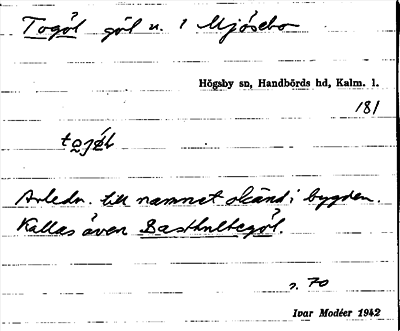 Togöl göl n. 1 Mjösebo
Högsby sn, Handbörds hd, Kalm. l.
181
Anledn. till namnet okänd i bygden.
Kallas även Basthultegöl.
s. 70
Ivar Modéer 1942